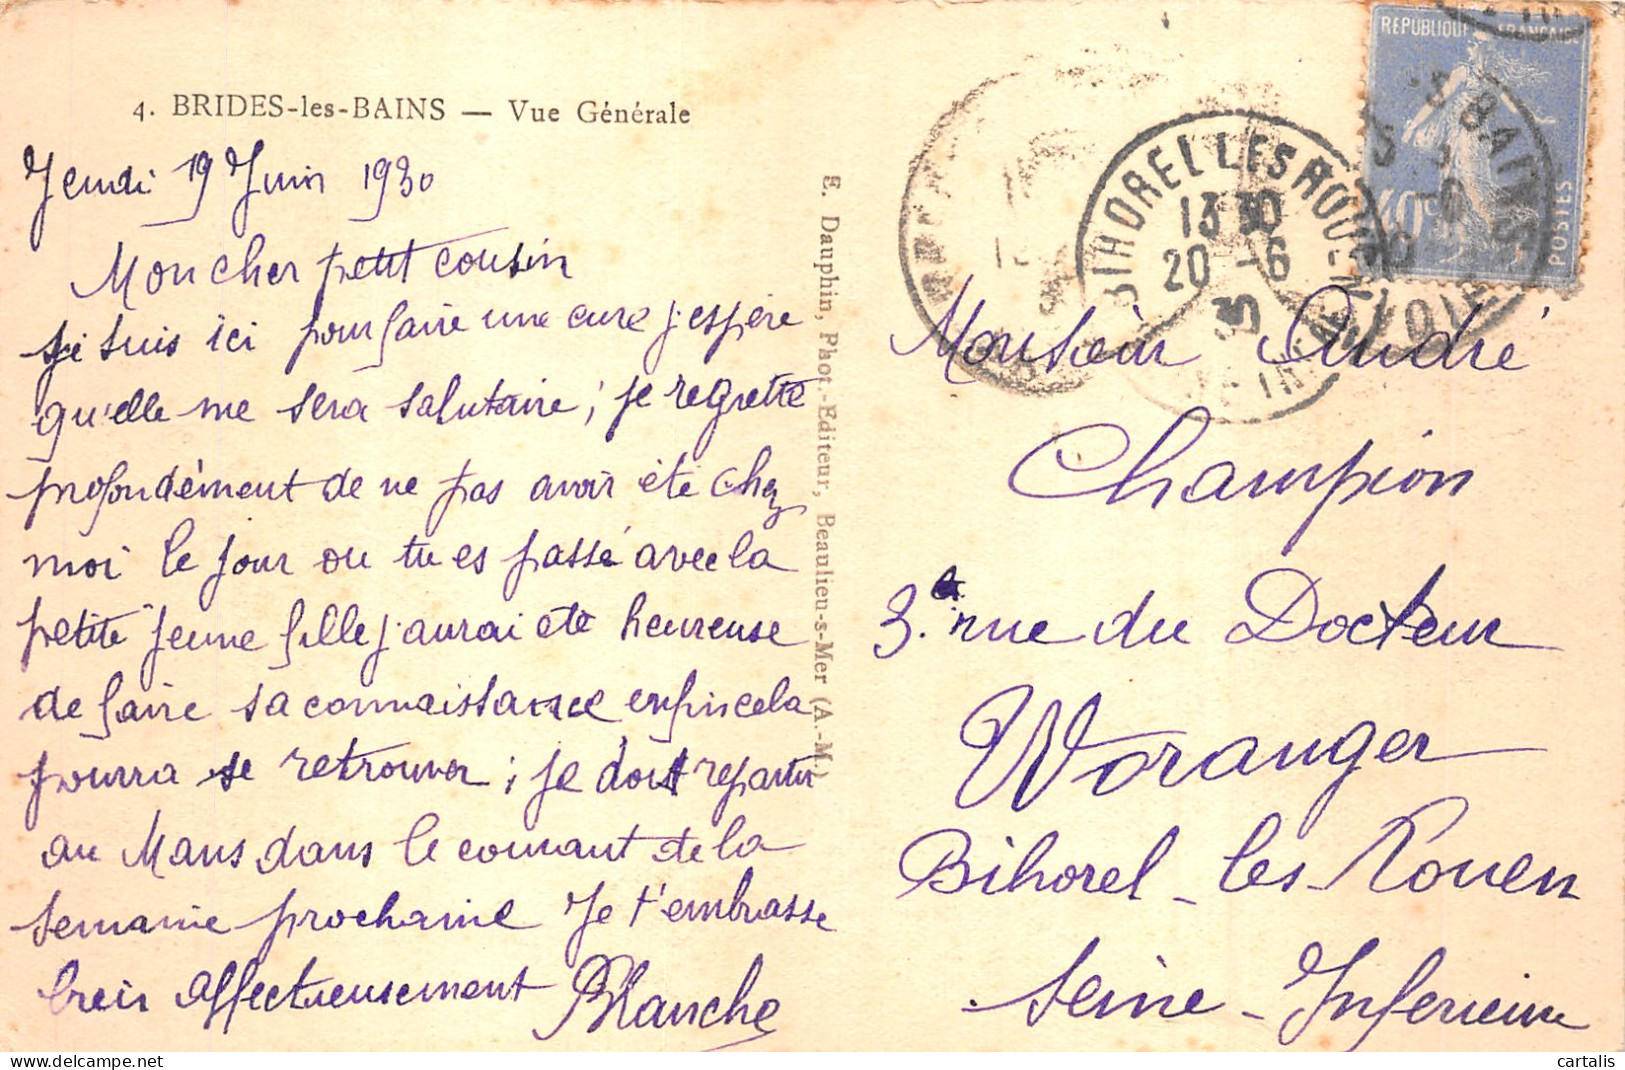 4. BRIDES-les-BAINS — Vue Générale
Jeudi 19 Juin 1930
Mon cher petit cousin
je suis ici pour faire une cure j'espère
qu'elle me sera salutaire ; je regrette
profondément de ne pas avoir été chez
moi le jour ou tu es passé avec la
petite jeune fille j'aurai été heureuse
de faire sa connaissance enfin cela
pourra se retrouver ; je dois repartir
au Mans dans le courant de la
semaine prochaine Je t'embrasse
bien affectueusement Blanche
E. Dauphin, Phot.-Editeur, Beaulieu-s-Mer (A.-M.)
REPUBLIQUE FRANÇAISE
40c
POSTES
BAINS
BIHOREL LES ROUEN
13 30
20 -6
30
Monsieur André
Champion
3 rue du Docteur
Woranger
Bihorel-les-Rouen
Seine-Inferieure
cartalis